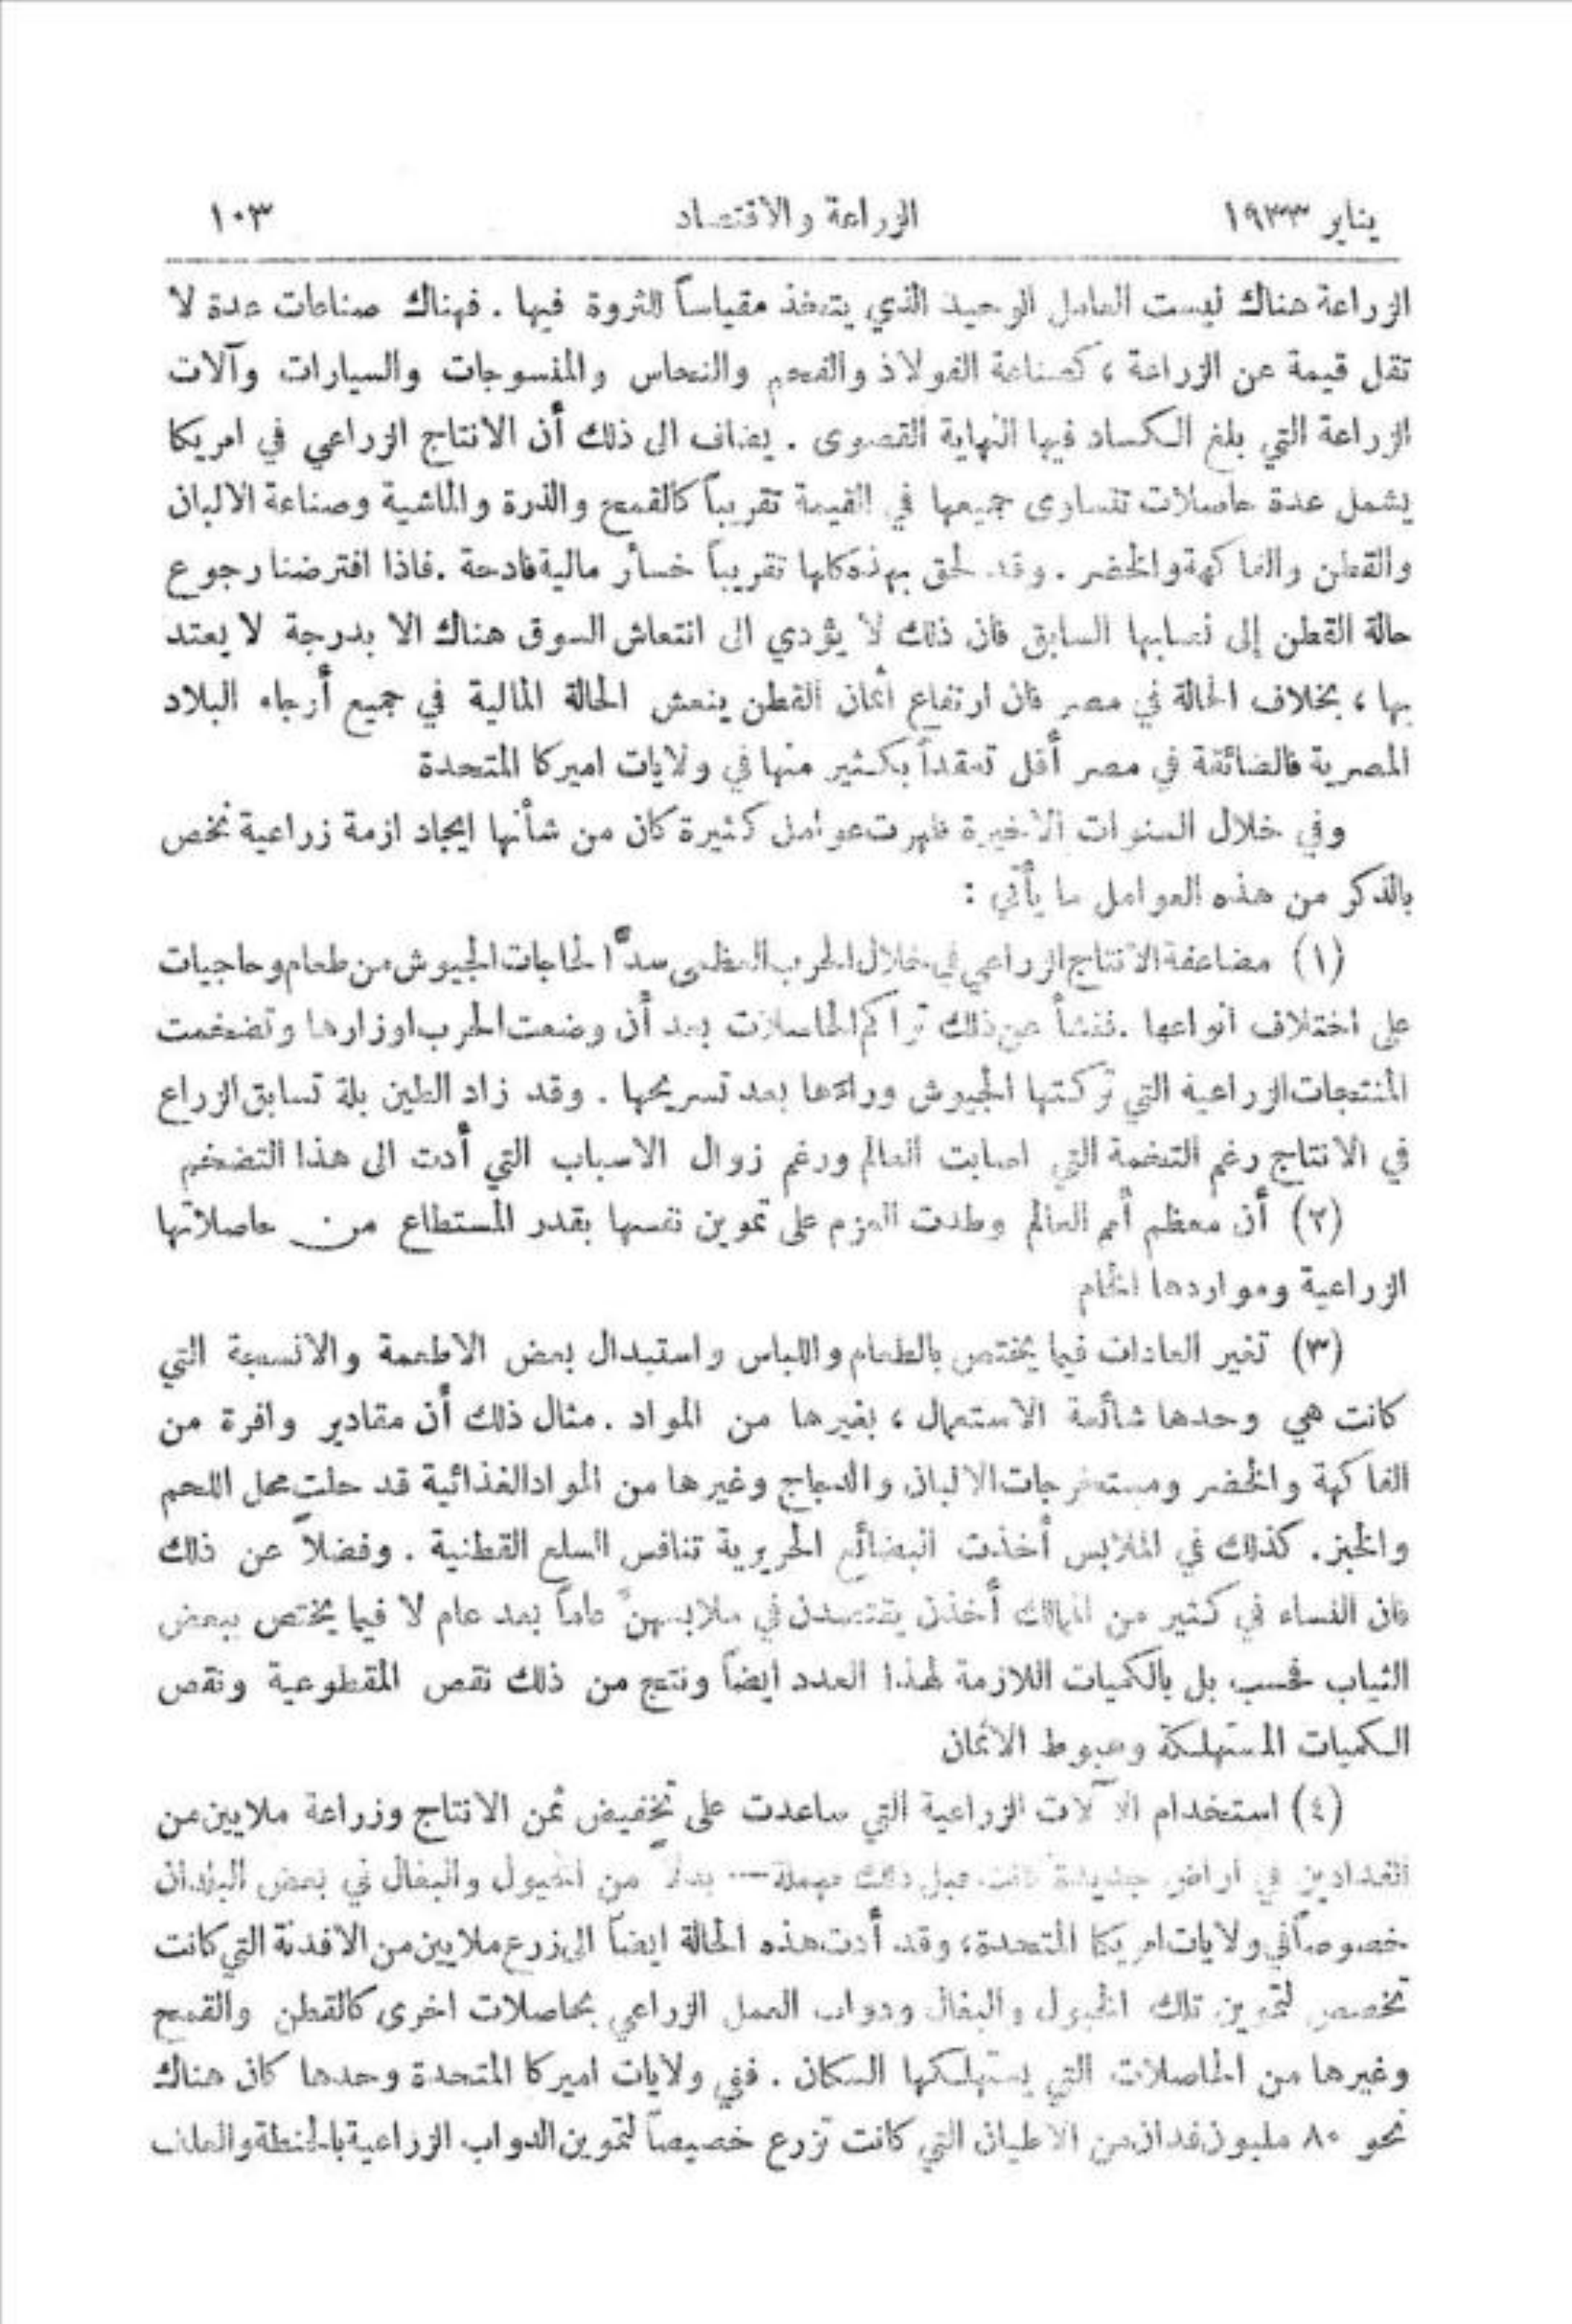 يناير ١٩٣٣ الزراعة والاقتصاد ١٠٣
الزراعة هناك ليست العامل الوحيد الذي يتخذ مقياساً للثروة فيها . فهناك صناعات عدة لا
تقل قيمة عن الزراعة ، كصناعة الفولاذ والفحم والنحاس والمنسوجات والسيارات وآلات
الزراعة التي بلغ الكساد فيها النهاية القصوى . يضاف الى ذلك أن الانتاج الزراعي في امريكا
يشمل عدة حاصلات تتساوى جميعها في القيمة تقريباً كالقمح والذرة والماشية وصناعة الالبان
والقطن والفاكهة والخضر . وقد لحق بهذه كلها تقريباً خسائر مالية فادحة . فاذا افترضنا رجوع
حالة القطن إلى نصابها السابق فان ذلك لا يؤدي الى انتعاش السوق هناك الا بدرجة لا يعتد
بها ، بخلاف الحالة في مصر فان ارتفاع أثمان القطن ينعش الحالة المالية في جميع أرجاء البلاد
المصرية فالضائقة في مصر أقل تعقداً بكثير منها في ولايات اميركا المتحدة
وفي خلال السنوات الاخيرة ظهرت عوامل كثيرة كان من شأنها ايجاد ازمة زراعية نخص
بالذكر من هذه العوامل ما يأتي :
(١) مضاعفة الانتاج الزراعي في خلال الحرب العظمى سدًّا لحاجات الجيوش من طعام وحاجيات
على اختلاف انواعها . فنشأ عن ذلك تراكم الحاصلات بعد أن وضعت الحرب اوزارها وتضخمت
المنتجات الزراعية التي تركتها الجيوش وراءها بعد تسريحها . وقد زاد الطين بلة تسابق الزراع
في الانتاج رغم التخمة التي اصابت العالم ورغم زوال الاسباب التي أدت الى هذا التضخم
(٢) أن معظم أمم العالم وطدت العزم على تموين نفسها بقدر المستطاع من حاصلاتها
الزراعية ومواردها الخام
(٣) تغير العادات فيما يختص بالطعام واللباس واستبدال بعض الاطعمة والانسجة التي
كانت هي وحدها شائعة الاستعمال ، بغيرها من المواد . مثال ذلك أن مقادير وافرة من
الفاكهة والخضر ومستخرجات الالبان والدجاج وغيرها من المواد الغذائية قد حلت محل اللحم
والخبز . كذلك في الملابس أخذت البضائع الحريرية تنافس السلع القطنية . وفضلاً عن ذلك
فان النساء في كثير من الممالك أخذن يقتصدن في ملابسهنَّ عاماً بعد عام لا فيما يختص ببعض
الثياب فحسب بل بالكميات اللازمة لهذا العدد ايضاً ونتج من ذلك نقص المقطوعية ونقص
الكميات المستهلكة وهبوط الاثمان
(٤) استخدام الآلات الزراعية التي ساعدت على تخفيض ثمن الانتاج وزراعة ملايين من
الفدادين في اراض جديدة كانت قبل ذلك مهملة — بدلاً من الخيول والبغال في بعض البلدان
خصوصاً في ولايات امريكا المتحدة ، وقد أدت هذه الحالة ايضاً الى زرع ملايين من الافدنة التي كانت
تخصص لتموين تلك الخيول والبغال ودواب العمل الزراعي بحاصلات اخرى كالقطن والقمح
وغيرها من الحاصلات التي يستهلكها السكان . ففي ولايات اميركا المتحدة وحدها كان هناك
نحو ٨٠ مليون فدان من الاطيان التي كانت تزرع خصيصاً لتموين الدواب الزراعية بالحنطة والعلف